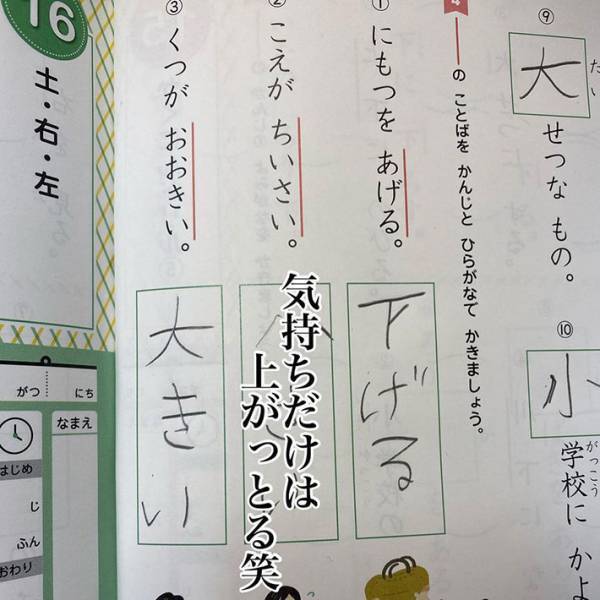 ⑨
たい
大せつな もの。
⑩
小学校に かよ
がっこう
4
――の ことばを かんじと ひらがなで かきましょう。
① にもつを あげる。
下げる
② こえが ちいさい。
③ くつが おおきい。
大きい
気持ちだけは
上がっとる笑
16
土・右・左
がつ にち
なまえ
はじめ
じ
ふん
おわり